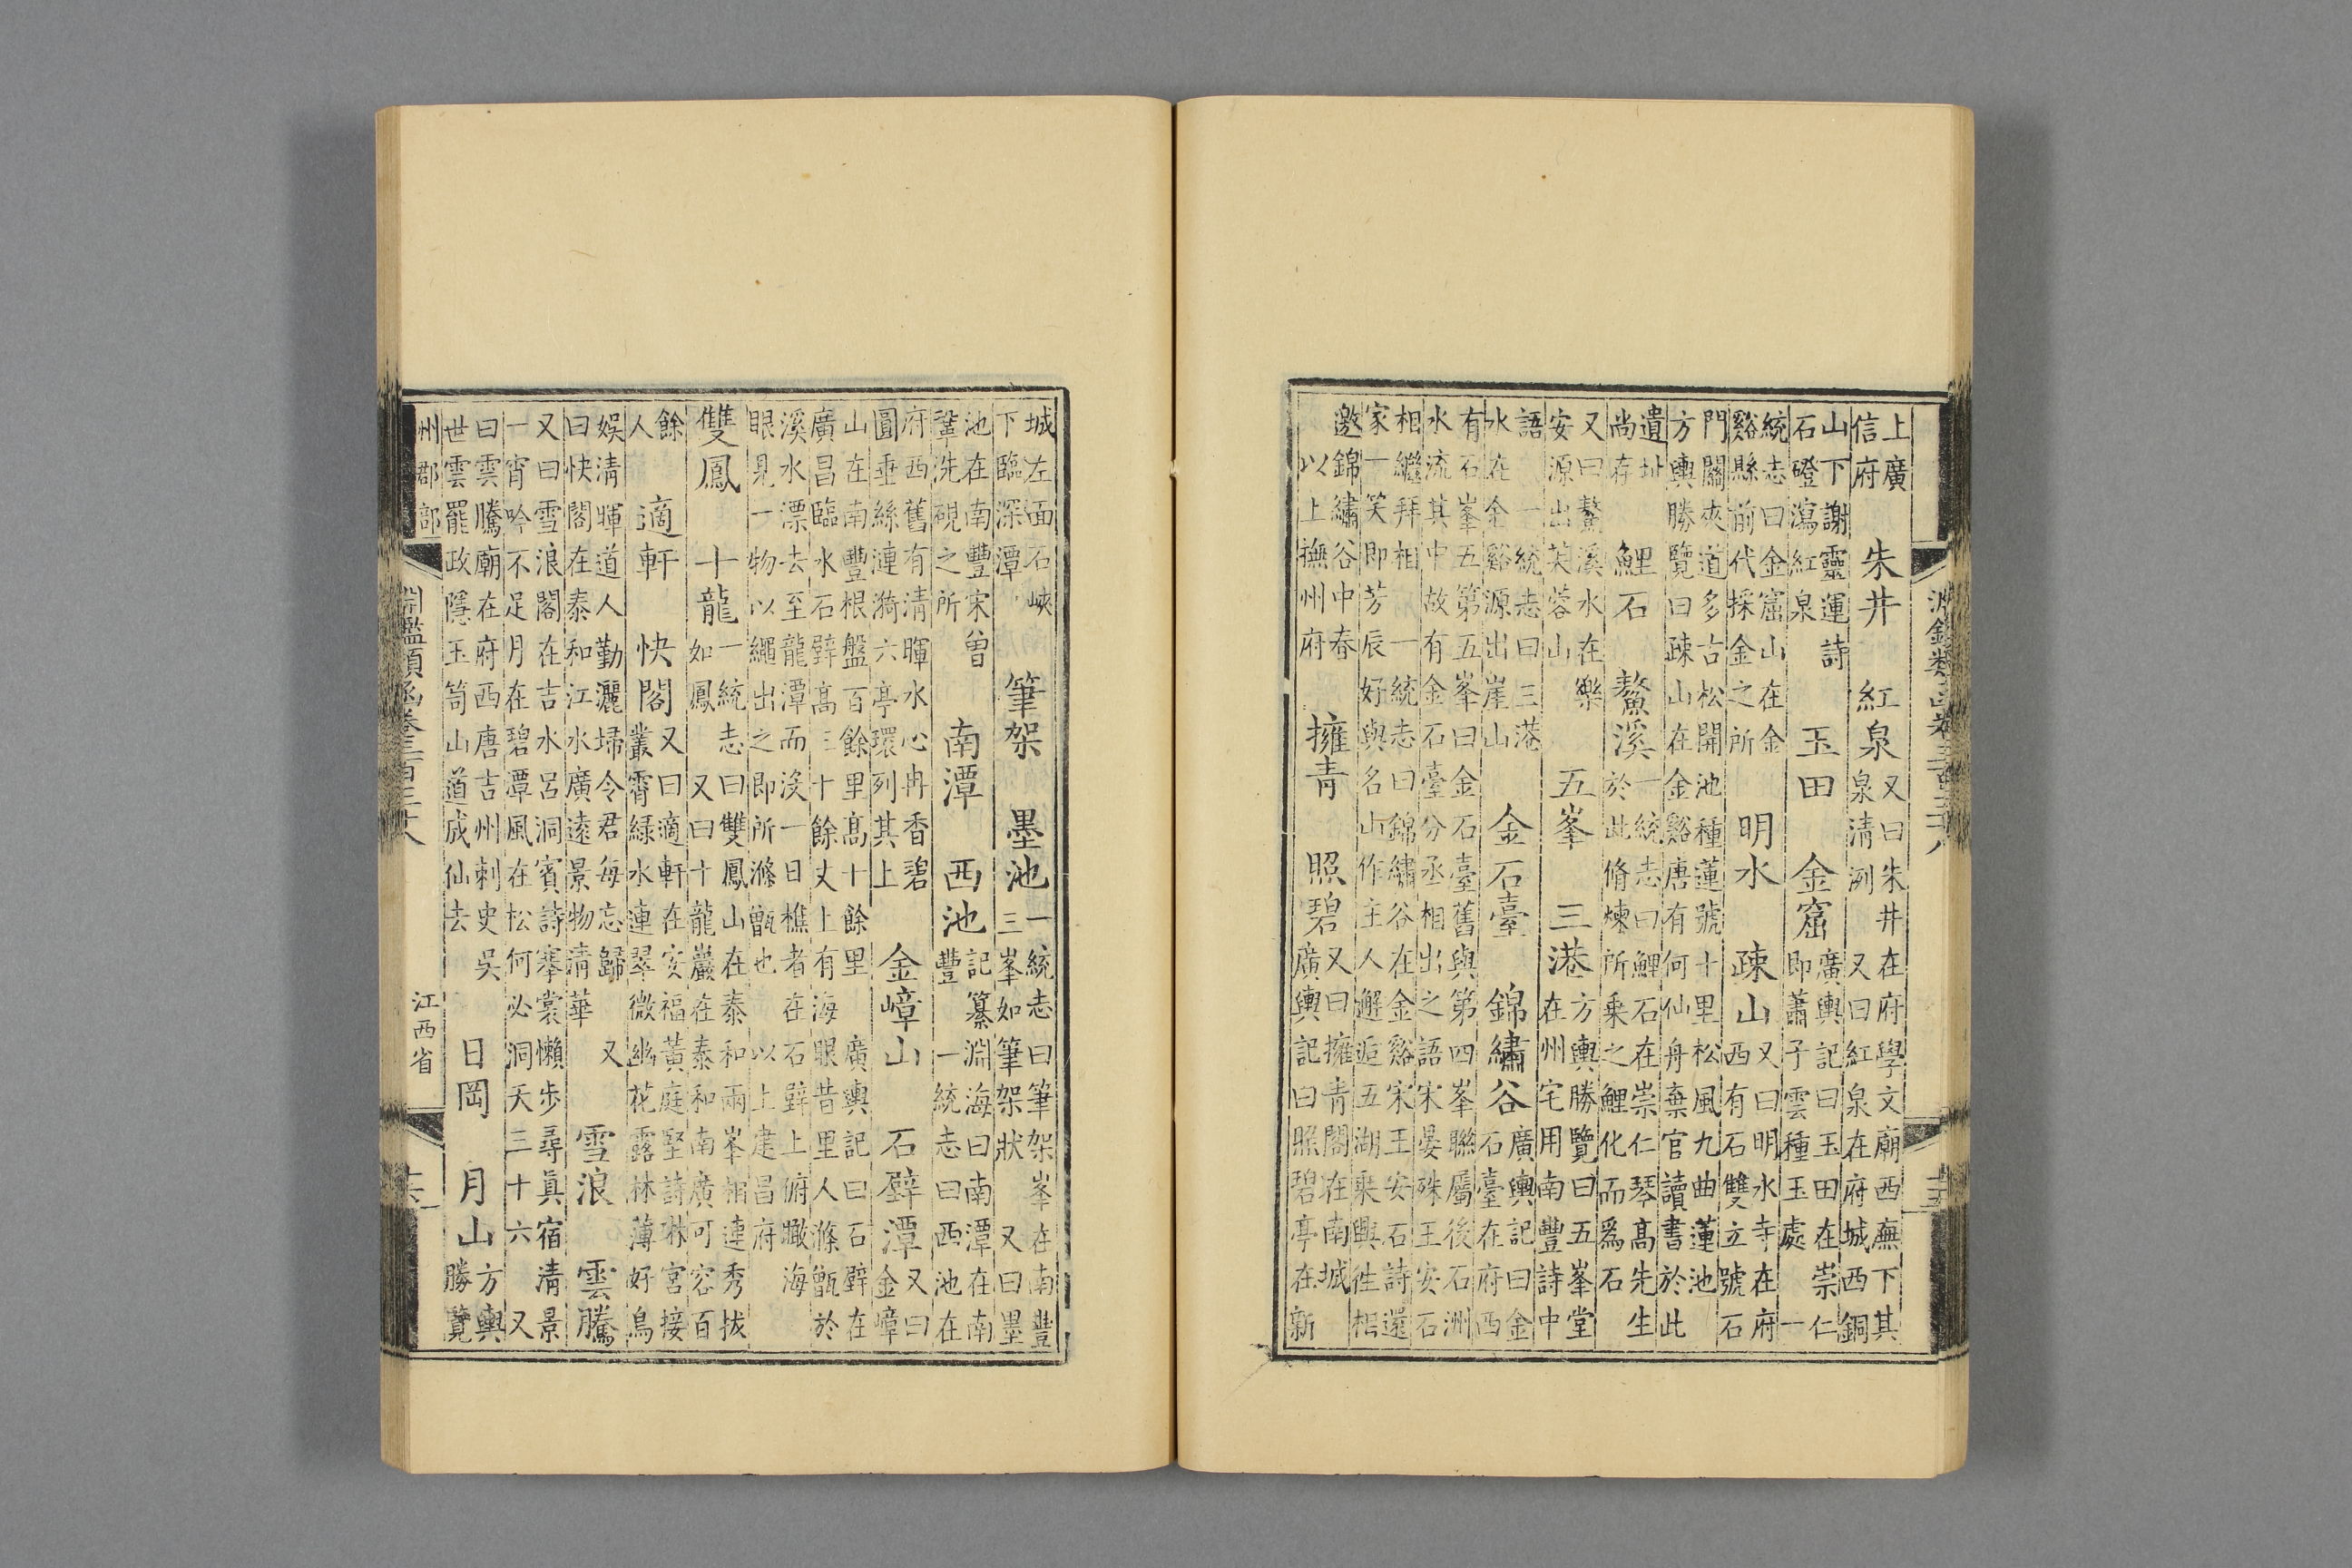 上廣信府 朱井 紅泉 又曰朱井在府學文廟西廡下其泉清洌 又曰紅泉在府城西銅
山下謝靈運詩石磴瀉紅泉 玉田 金窟 廣輿記曰玉田在崇仁即蕭子雲種玉處 一
統志曰金窟山在金谿縣前代採金之所 明水 疎山 又曰明水寺在府西有石雙立號石
門關夾道多古松開池種蓮號十里松風九曲蓮池方輿勝覽曰疎山在金谿唐有何仙舟棄官讀書於此
遺址尚存 鯉石 鰲溪 一統志曰鯉石在崇仁琴高先生於此脩煉所乘之鯉化而爲石
又曰鰲溪水在樂安源出芙蓉山 五峯 三港 方輿勝覽曰五峯堂在州宅用南豐詩中
語 一統志曰三港水在金谿源出崖山 金石臺 錦繡谷 廣輿記曰金石臺在府西
有石峯五第五峯曰金石臺舊與第四峯聯屬後石洲水流其中故有金石臺分丞相出之語宋晏殊王安石
相繼拜相 一統志曰錦繡谷在金谿宋王安石詩還家一笑即芳辰好與名山作主人邂逅五湖乘興往相
邀錦繡谷中春 以上撫州府 擁青 照碧 又曰擁青閣在南城 廣輿記曰照碧亭在新
城左面石峽下臨深潭 筆架 墨池 一統志曰筆架峯在南豐三峯如筆架狀 又曰墨
池在南豐宋曾鞏洗硯之所 南潭 西池 記纂淵海曰南潭在南豐 一統志曰西池在
府西舊有清暉水心冉香碧圓垂絲漣漪六亭環列其上 金嶂山 石壁潭 又曰金嶂
山在南豐根盤百餘里高十餘里 廣輿記曰石壁在廣昌臨水石壁高三十餘丈上有海眼昔里人滌甑於
溪水漂去至龍潭而沒一日樵者在石壁上俯瞰海眼見一物以繩出之即所滌甑也 以上建昌府
雙鳳 十龍 一統志曰雙鳳山在泰和兩峯相連秀拔如鳳 又曰十龍巖在泰和南廣可容百
餘人 適軒 快閣 又曰適軒在安福黃庭堅詩林宮接叢霄綠水連翠微幽花露林薄好鳥
娛清暉道人勤灑埽令君每忘歸 又曰快閣在泰和江水廣遠景物清華 雪浪 雲騰
又曰雪浪閣在吉水呂洞賓詩搴裳懶步尋眞宿清景一宵吟不足月在碧潭風在松何必洞天三十六 又
曰雲騰廟在府西唐吉州刺史吳世雲罷政隱玉笥山道成仙去 日岡 月山 方輿勝覽
州郡部 江西省